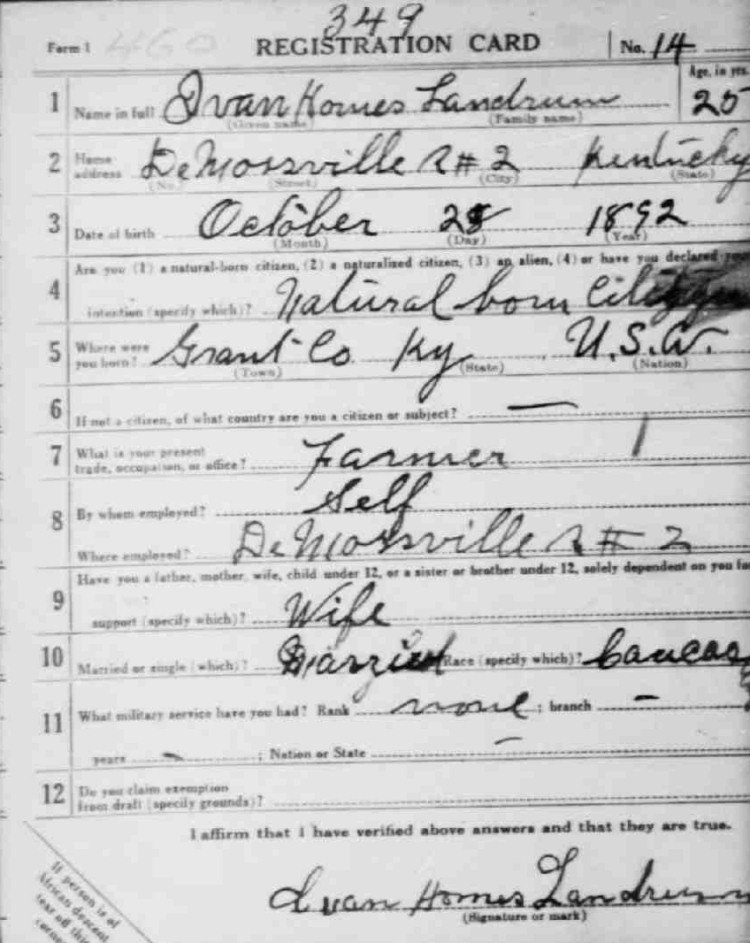 349
Form 1 460 REGISTRATION CARD No. 14
Age, in yrs.
1 Name in full Ivan Homes Landrum 25
(Given name) (Family name)
2 Home address DeMossville R # 2 Kentucky
(No.) (Street) (City) (State)
3 Date of birth October 28 1892
(Month) (Day) (Year)
Are you (1) a natural-born citizen, (2) a naturalized citizen, (3) an alien, (4) or have you declared your
4 intention (specify which)? Natural born Citizen
5 Where were you born? Grant Co Ky U.S.A.
(Town) (State) (Nation)
6 If not a citizen, of what country are you a citizen or subject? —
7 What is your present trade, occupation, or office? Farmer
8 By whom employed? Self
Where employed? DeMossville R # 2
Have you a father, mother, wife, child under 12, or a sister or brother under 12, solely dependent on you for
9 support (specify which)? Wife
10 Married or single (which)? Married Race (specify which)? Caucas
11 What military service have you had? Rank none ; branch —
years — ; Nation or State —
12 Do you claim exemption from draft (specify grounds)?
I affirm that I have verified above answers and that they are true.
Ivan Homes Landrum
(Signature or mark)
If person is of
African descent
tear off this
corner